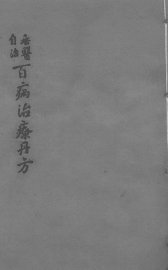 無醫自治
百病治療丹方